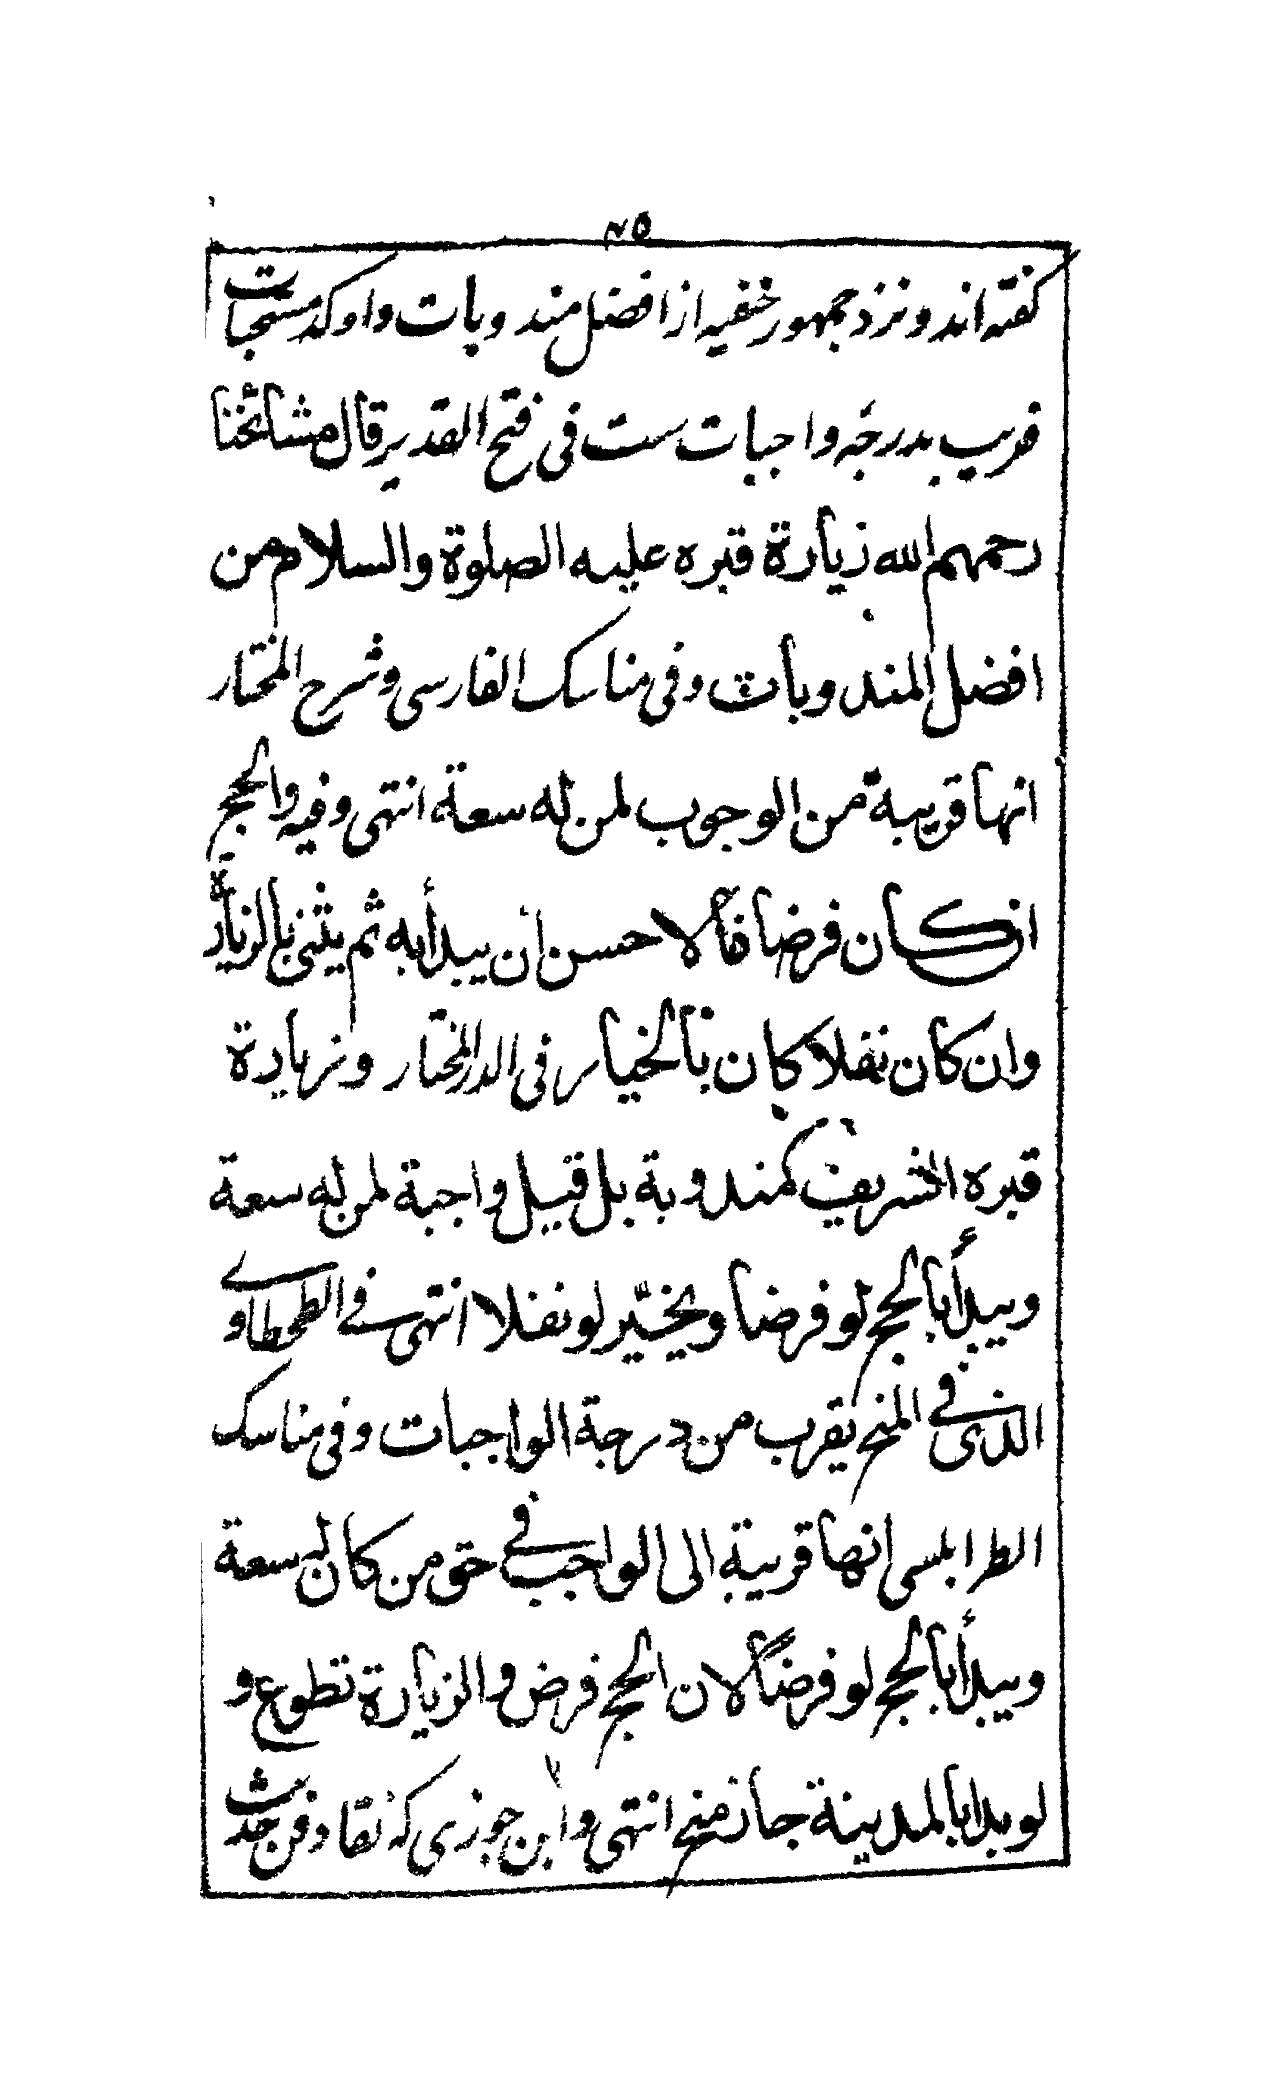 ۴۵
گفته اند و نزد جمهور حنفیه از افضل مندوبات و اوکد مستحبات
قریب بدرجهٔ واجبات ست فی فتح القدیر قال مشائخنا
رحمهم الله زیارة قبره علیه الصلوة والسلام من
افضل المندوبات وفی مناسک الفارسی وشرح المختار
انها قریبة من الوجوب لمن له سعة انتهی وفیه والحج
ان کان فرضا فالاحسن ان یبدأ به ثم یثنی بالزیارة
وان کان نفلا کان بالخیار فی الدر المختار وزیارة
قبره الشریف مندوبة بل قیل واجبة لمن له سعة
ویبدأ بالحج لو فرضا ویخیّر لو نفلا انتهی فی الطحطاوی
الذی فی المنح یقرب من درجة الواجبات وفی مناسک
الطرابلسی انها قریبة الی الواجب فی حق من کان له سعة
ویبدأ بالحج لو فرضًا لان الحج فرض والزیارة تطوع و
لو بدا بالمدینة جاز منح انتهی و ابن جوزی که نقاد فن حدیث